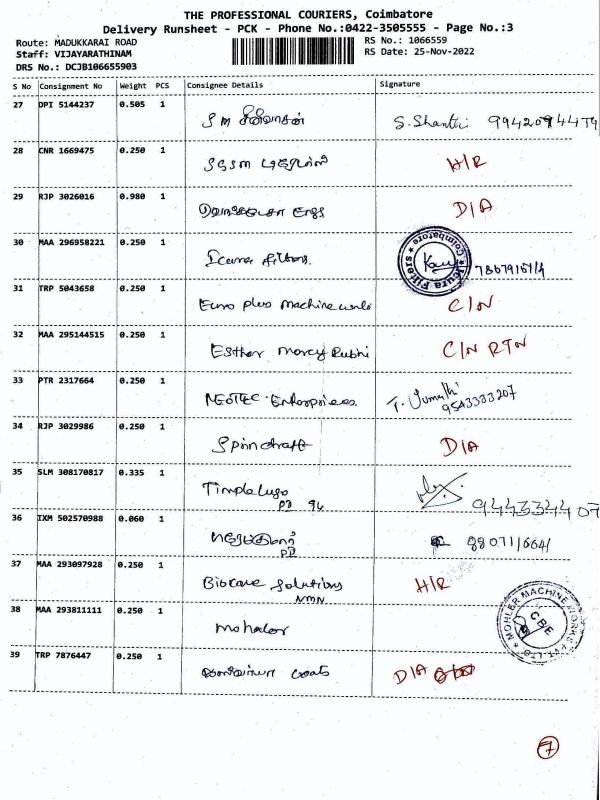 THE PROFESSIONAL COURIERS, Coimbatore
Delivery Runsheet - PCK - Phone No.:0422-3505555 - Page No.:3
Route: MADUKKARAI ROAD RS No.: 1066559
Staff: VIJAYARATHINAM RS Date: 25-Nov-2022
DRS No.: DCJB106655903
S No Consignment No Weight PCS Consignee Details Signature
27 DPI 5144237 0.505 1
S M சீனிவாசன் S. Shanthi
28 CNR 1669475 0.250 1
H/R
29 RJP 3026016 0.980 1
D/A
30 MAA 296958221 0.250 1
Icura Filters Coimbatore
31 TRP 5043658 0.250 1
Euro plus machine world C/N
32 MAA 295144515 0.250 1
Esther mercy Rubhi C/N RTN
33 PTR 2317664 0.250 1
NEOTEC Enterprises. T. 9543333207
34 RJP 3029986 0.250 1
Spincraft D/A
35 SLM 308170817 0.335 1
PD 94 944334407
36 IXM 502570988 0.060 1
PD
37 MAA 293097928 0.250 1
Biocare Solutions H/R
NMN
38 MAA 293811111 0.250 1
mohaler MOHLER MACHINE WORKS PVT LTD CBE
39 TRP 7876447 0.250 1
D/A
7